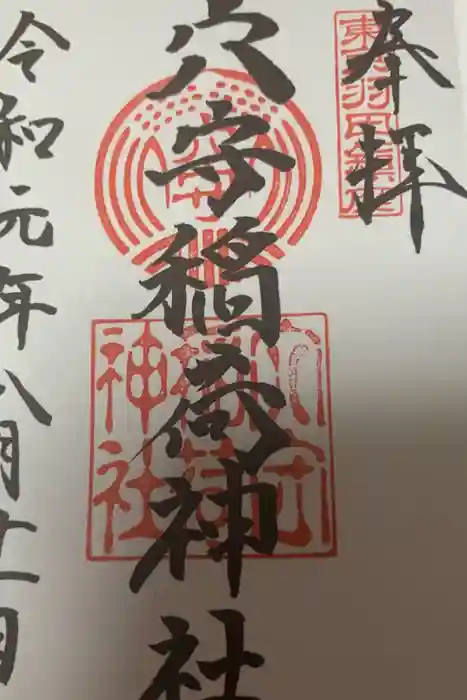 奉拝
東京羽田鎮座
穴守稲荷神社
穴守
稲荷
神社
令和元年八月十一日